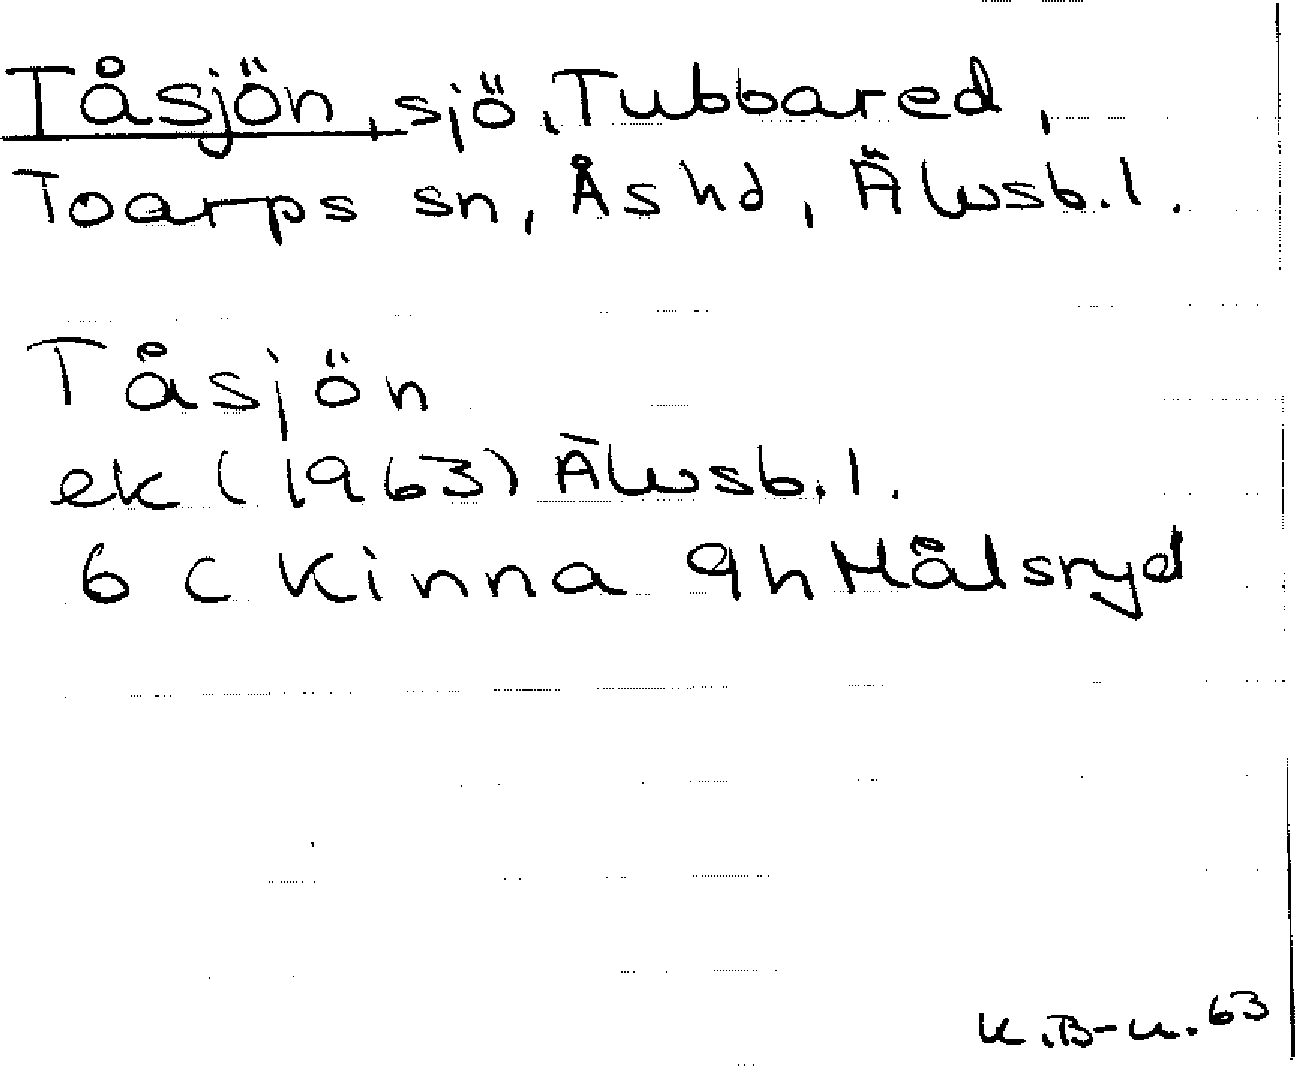 Tåsjön, sjö, Tubbared,
Toarps sn, Ås hd, Älvsb. l.
Tåsjön
ek (1963) Älvsb. l.
6 C Kinna 9h Målsryd
K.B-n. 63